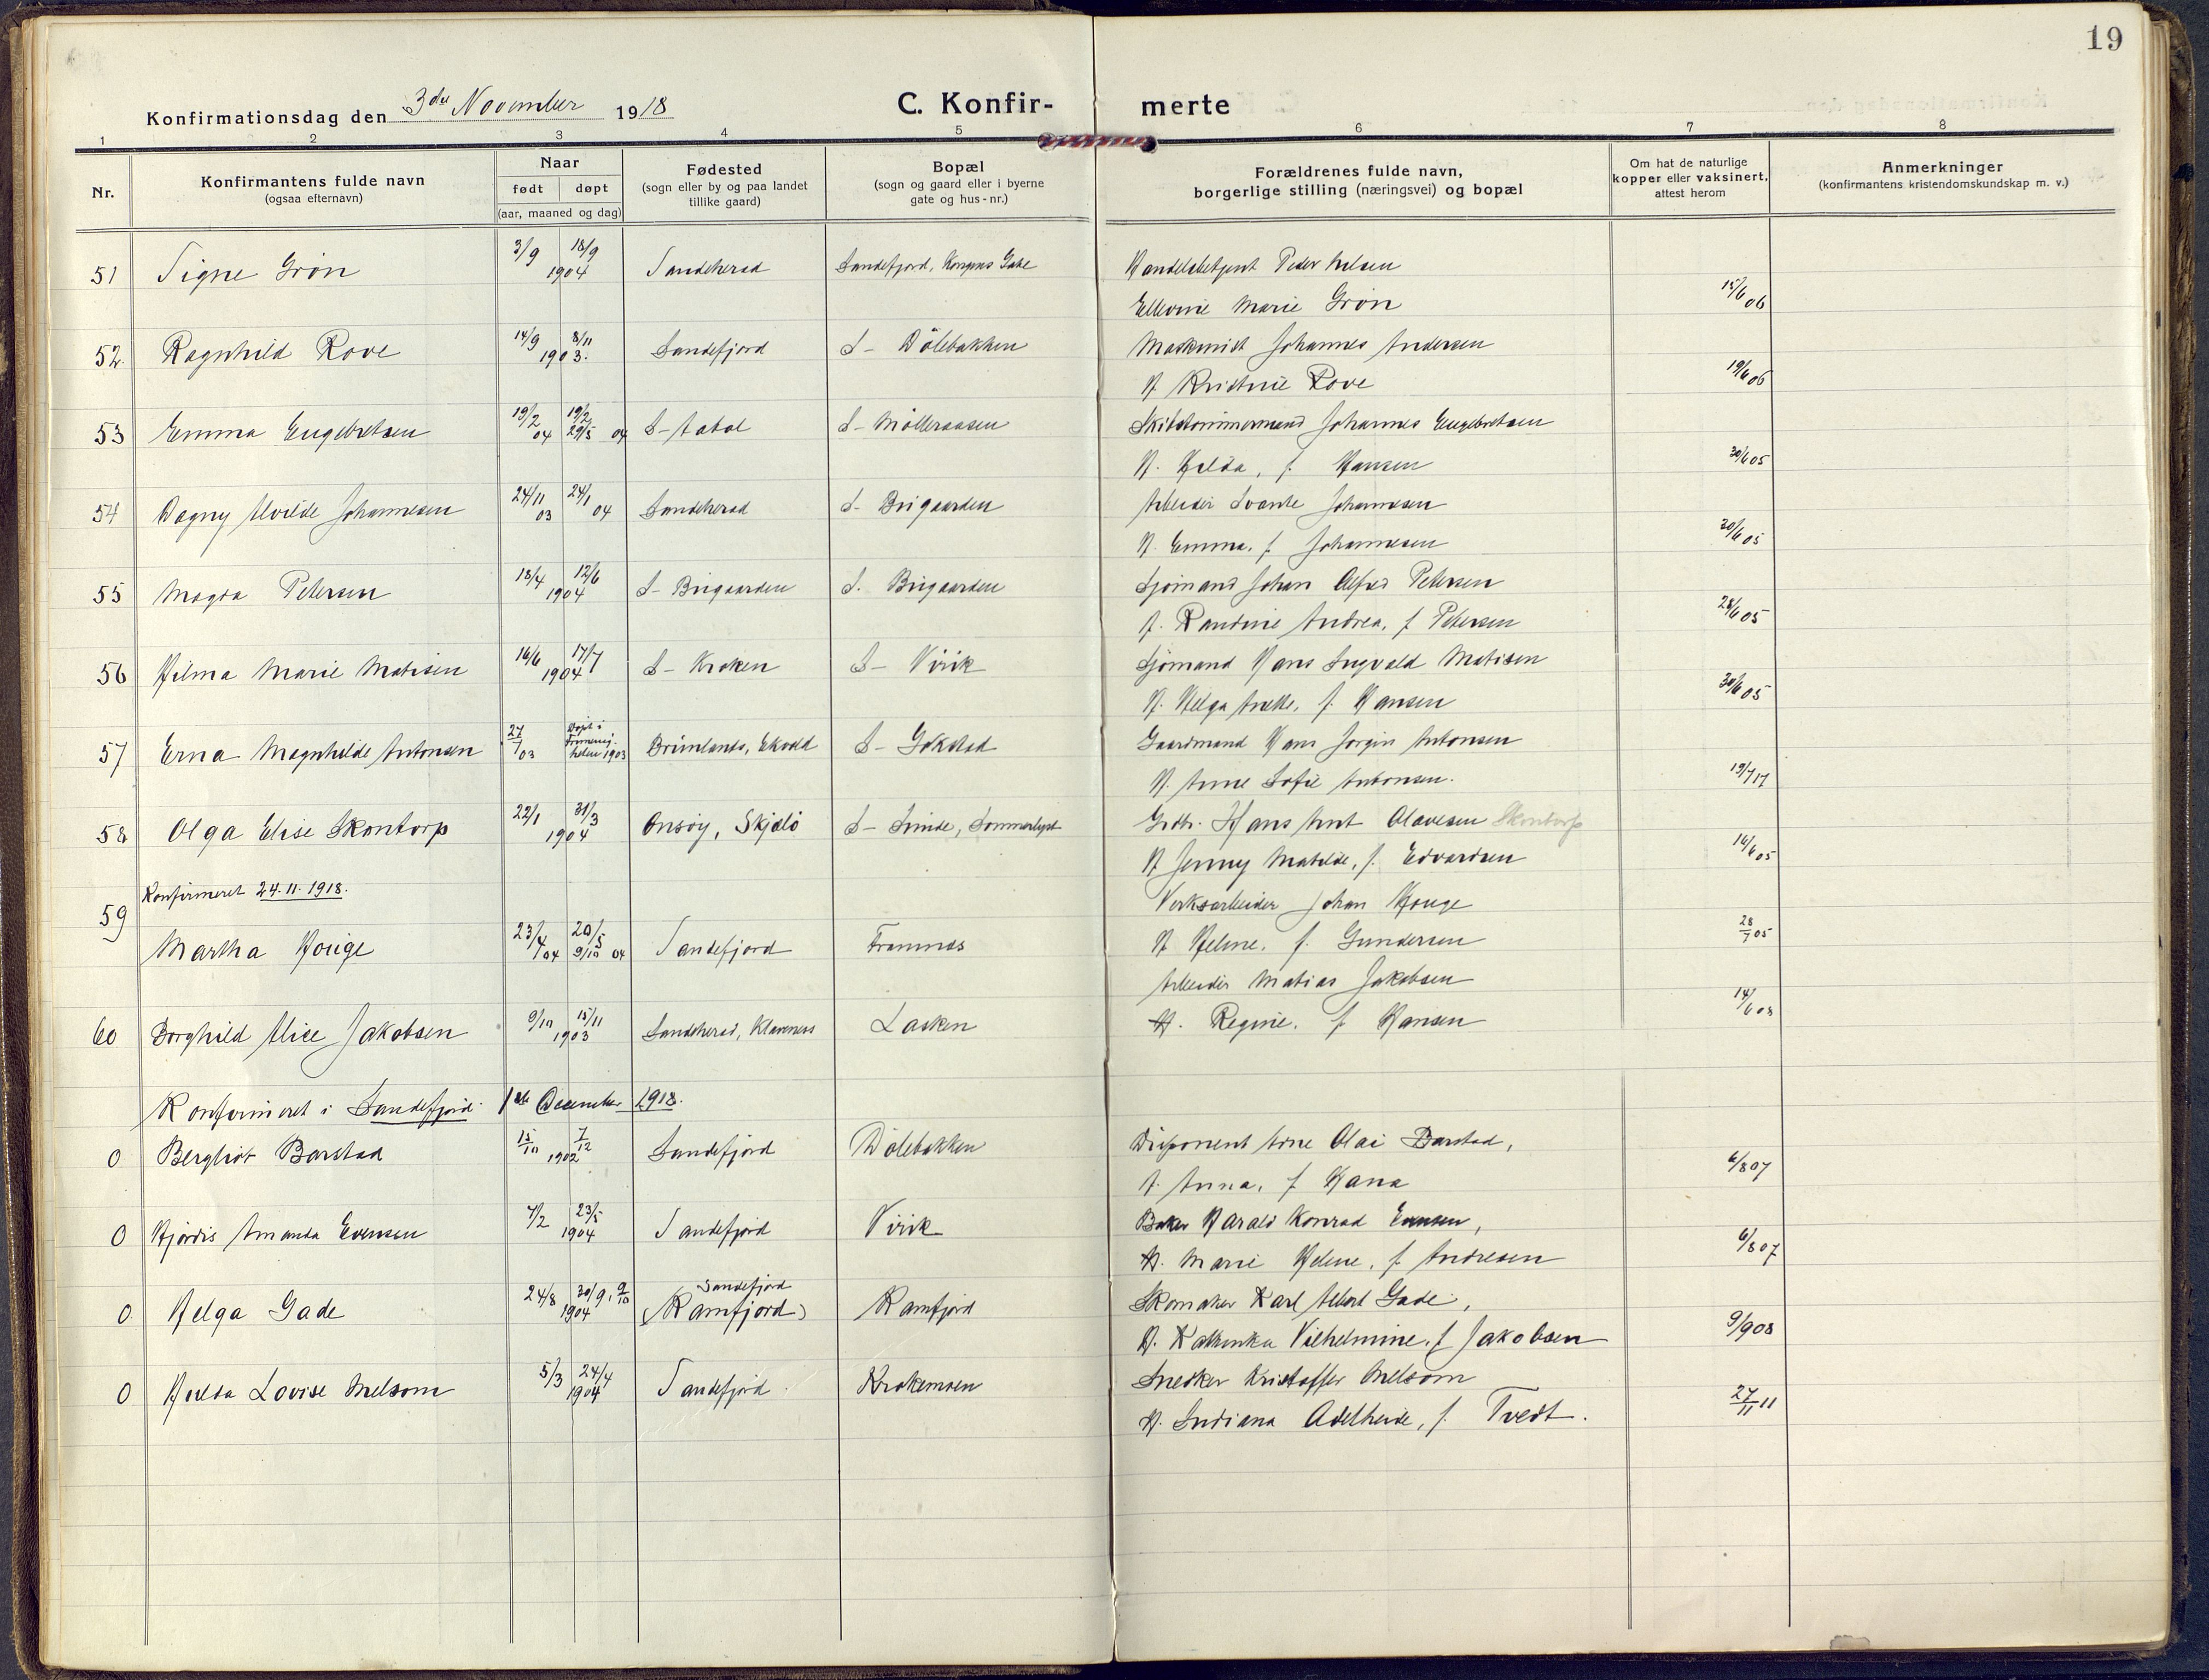 19
Konfirmationsdag den 3die November 1918
C. Konfir- merte
1 2 3 4 5 6 7 8
Nr.
Konfirmantens fulde navn
(ogsaa efternavn)
Naar
født døpt
(aar, maaned og dag)
Fødested
(sogn eller by og paa landet
tillike gaard)
Bopæl
(sogn og gaard eller i byerne
gate og hus-nr.)
Forældrenes fulde navn,
borgerlige stilling (næringsvei) og bopæl
Om hat de naturlige
kopper eller vaksinert,
attest herom
Anmerkninger
(konfirmantens kristendomskundskap m. v.)
51 Signe Grøn 3/9 18/9 1904 Sandeherad Sandefjord, Kongens Gate Handelsbetjent Peder Nelsen
Ellevine Marie Grøn 15/6 06
52 Ragnhild Rove 14/9 8/11 1903. Sandefjord S- Dölebakken Maskinist Johannes Andersen
H. Kristine Rove 19/6 06
53 Emma Engebretsen 19/2 04 19/2 29/5 04 S- S- Mölleraasen Skibstömmermand Johannes Engebretsen
H. Hilda, f. Hansen 30/6 05
54 Dagny Alvilde Johannesen 24/11 03 24/1 04 Sandeherad S- Brigaarden Arbeider Svante Johannesen
H. Emma, f. Johannesen 30/6 05
55 Magda Petersen 18/4 12/6 1904 S- Brigaarden S. Brigaarden Sjömand Johan Alfred Petersen
H. Randine Andrea, f. Petersen 28/6 05
56 Hilma Marie Matisen 16/6 17/7 1904 S- Kroken S- Virik Sjömand Hans Ingvald Matisen
H. Helga Anette, f. Hansen 30/6 05
57 Erna Magnhilde Antonsen 27/1 03 Döpt i 1903 Brunlanes, Ekvold S- Gokstad Gaardmand Hans Jörgin Antonsen
H. Anne Sofie Antonsen. 19/7 17
58 Olga Elise Skontorp 22/1 31/3 1904 Onsöy, Skjælö S- Linde, Sommerlyst Grdbr. Hans Ant Olavesen Skontorp
H. Jenny Matilde, f. Edvardsen 16/6 05
Konfirmeret 24.11.1918.
59 Martha Houge 23/4 04 20/5 9/10 04 Sandefjord Framnes Verksarbeider Johan Houge
H. Helene, f. Gundersen 28/7 05
60 Borghild Alice Jakobsen 9/10 15/11 1903 Sandeherad, Klavenes Lasken Arbeider Matias Jakobsen
H. Regine, f. Hansen 14/6 08
Konfirmeret i Sandefjord 1ste December 1918.
0 Bergliot Barstad 15/10 7/12 1902 Sandefjord Dölebakken Disponent Arne Olai Barstad,
H. Anna, f. Hana 6/8 07
0 Hjördis Amanda Evensen 7/2 23/5 1904 Sandefjord Virik Baker Harald Konrad Evensen,
H. Marie Helene, f. Andresen 6/8 07
0 Helga Gade 24/8 30/9, 9/10 1904 Sandefjord (Kamfjord) Kamfjord Skomaker Karl Albert Gade,
H. Kathinka Vilhelmine, f. Jakobsen 9/9 08
0 Hulda Lovise Melsom 5/3 24/4 1904 Sandefjord Krokemoen Snedker Kristoffer Melsom
H. Indiana Adelheide, f. Tvedt. 27/11 11